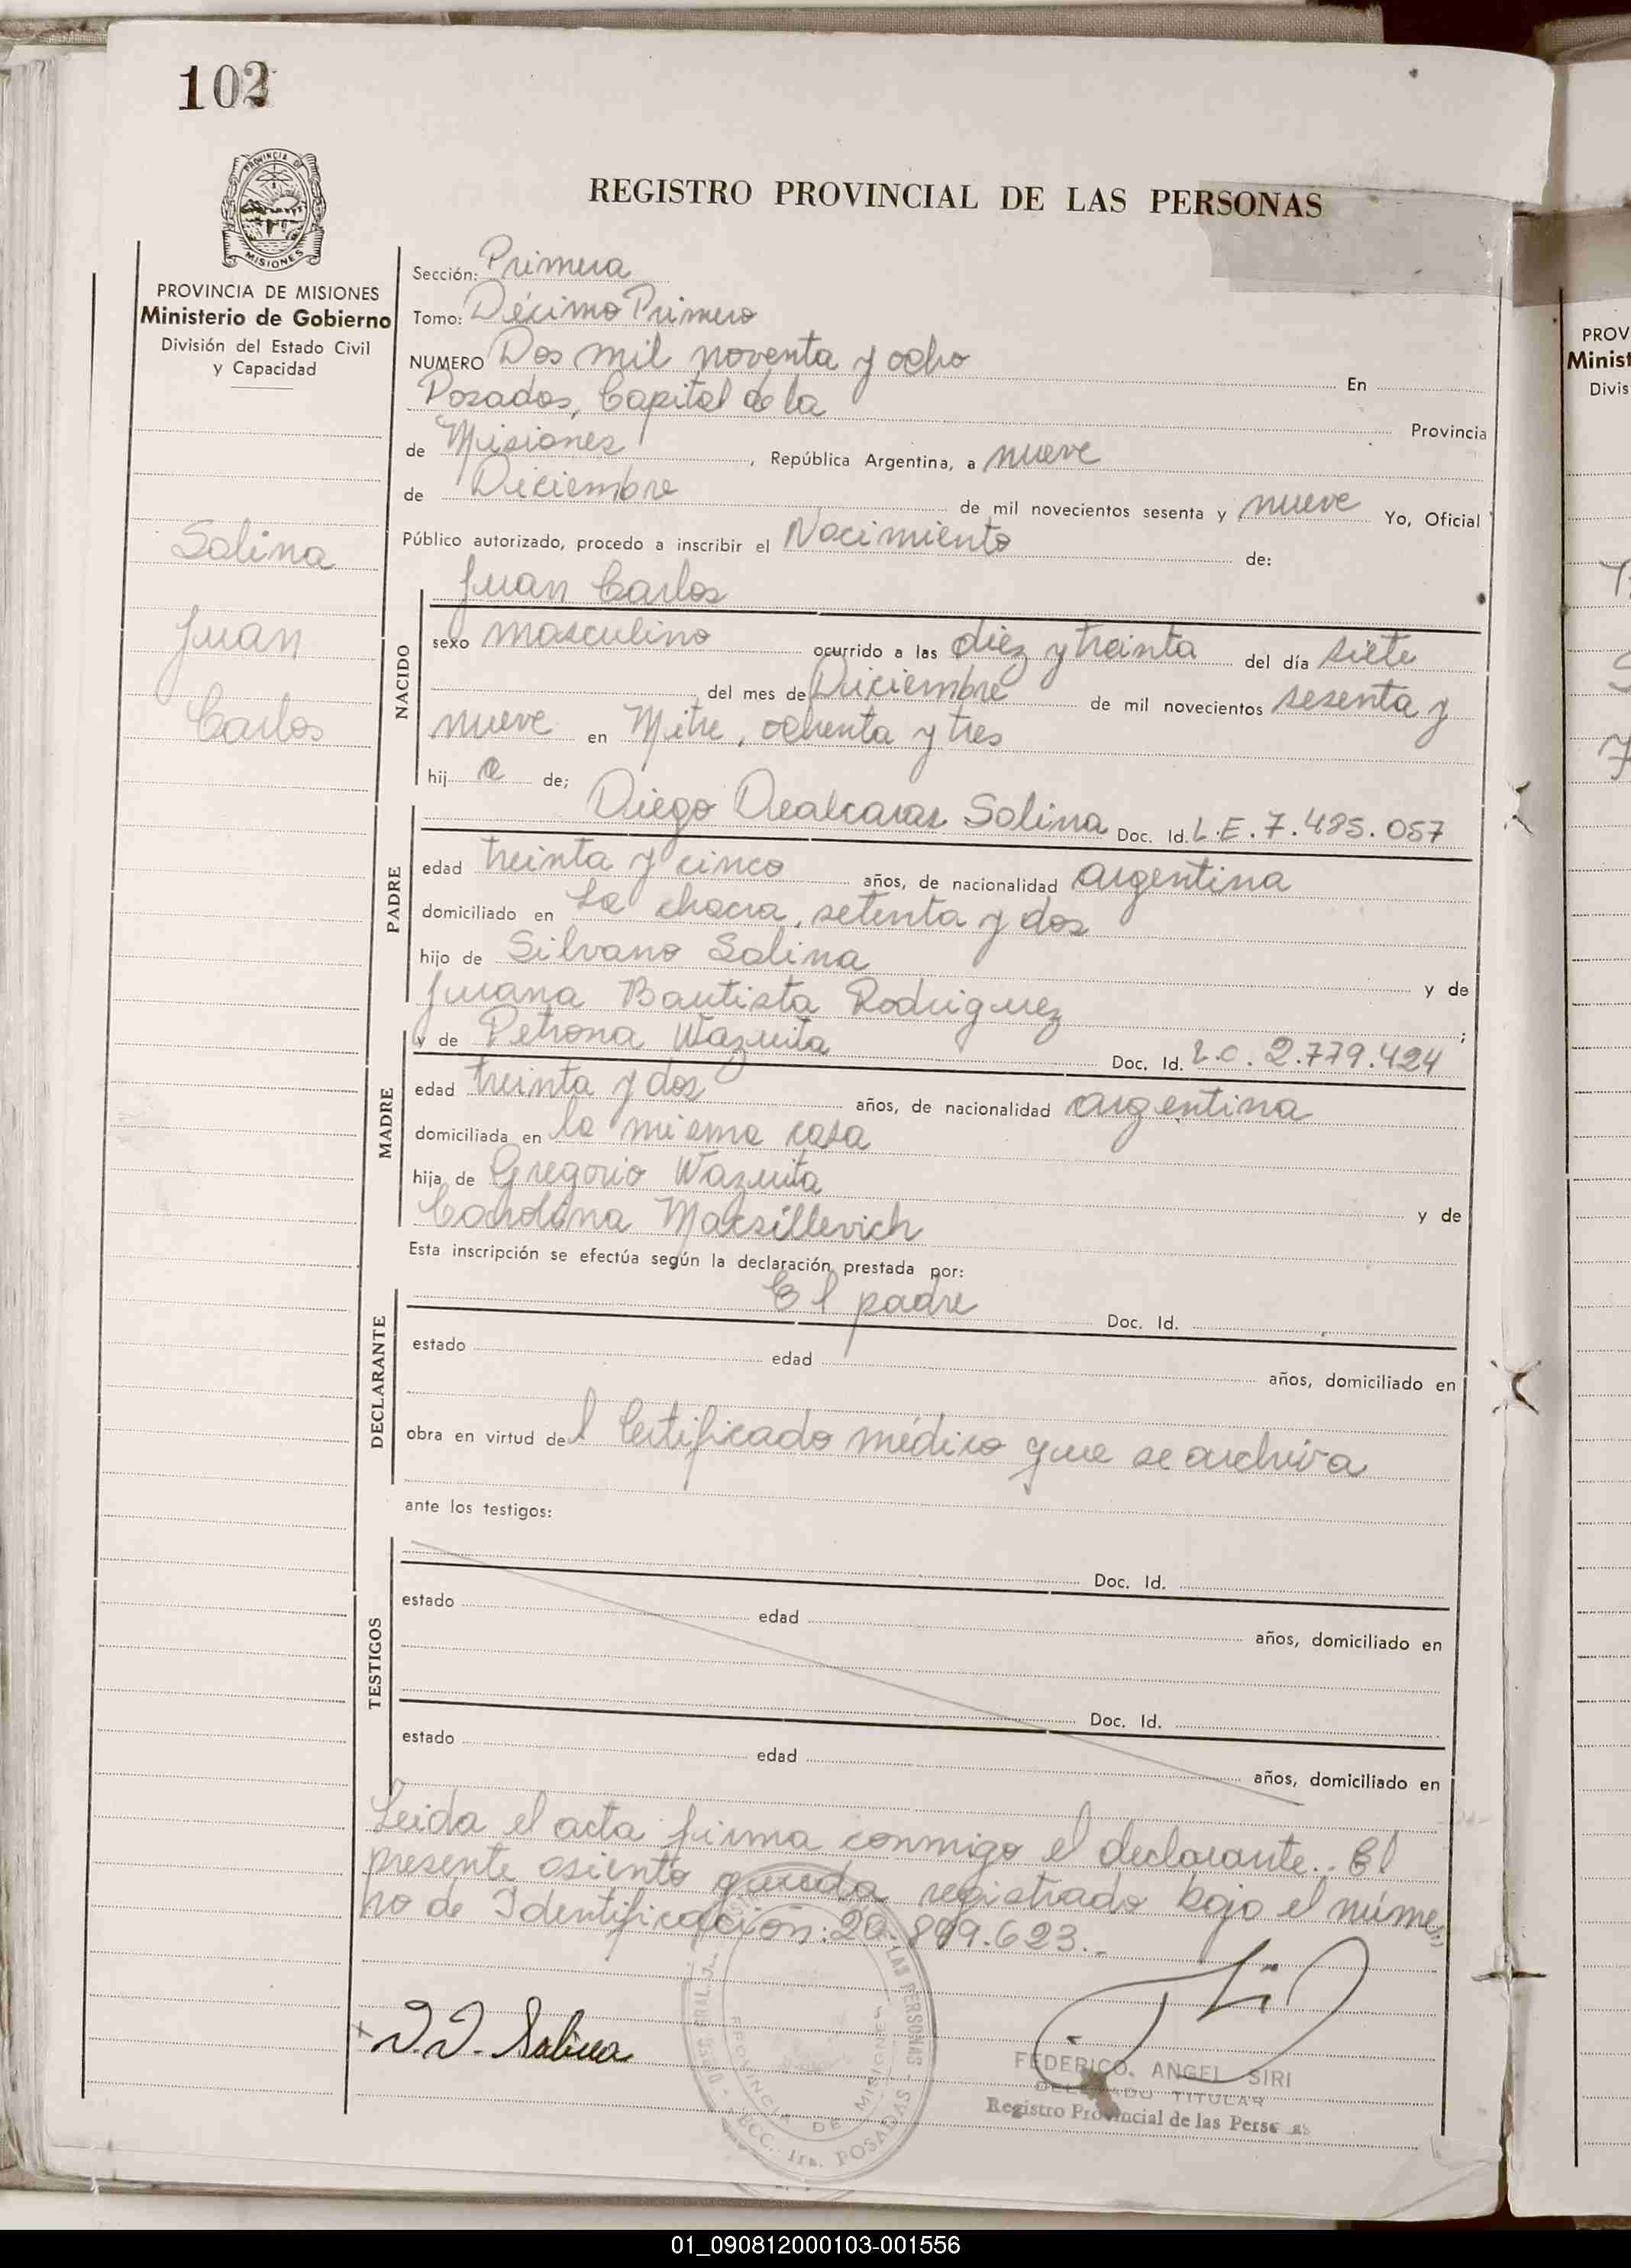 102
PROVINCIA DE
MISIONES
REGISTRO PROVINCIAL DE LAS PERSONAS
PROVINCIA DE MISIONES
Ministerio de Gobierno
División del Estado Civil
y Capacidad
Salina
Juan
Carlos
Sección: Primera
Tomo: Décimo Primero
NUMERO Dos mil noventa y ocho En
Posadas, Capital de la Provincia
de Misiones, República Argentina, a nueve
de Diciembre de mil novecientos sesenta y nueve Yo, Oficial
Público autorizado, procedo a inscribir el Nacimiento de:
NACIDO
Juan Carlos
sexo masculino ocurrido a las diez y treinta del día siete
del mes de Diciembre de mil novecientos sesenta y
nueve en Mitre, ochenta y tres
hij o de;
PADRE
Diego Dealcaraz Salina Doc. Id. L.E. 7.485.057
edad treinta y cinco años, de nacionalidad argentina
domiciliado en La chacra, setenta y dos
hijo de Silvano Salina y de
Juana Bautista Rodriguez;
MADRE
y de Petrona Wazuita Doc. Id. L.C. 2.779.424
edad treinta y dos años, de nacionalidad argentina
domiciliada en la misma casa
hija de Gregorio Wazuita y de
Carolina Marsillevich
Esta inscripción se efectúa según la declaración prestada por:
DECLARANTE
El padre Doc. Id.
estado edad años, domiciliado en
obra en virtud del Certificado médico que se archiva
ante los testigos:
TESTIGOS
Doc. Id.
estado edad años, domiciliado en
Doc. Id.
estado edad años, domiciliado en
Leida el acta firma conmigo el declarante.. El
presente asiento queda registrado bajo el núme
ro de Identificación: 20.899.623..
D.D. Salina
LAS PERSONAS
PROVINCIA DE MISIONES
SECC. 1ra. POSADAS
FEDERICO ANGEL SIRI
DELEGADO TITULAR
Registro Provincial de las Personas
PROV
Minist
Divis
01_090812000103-001556